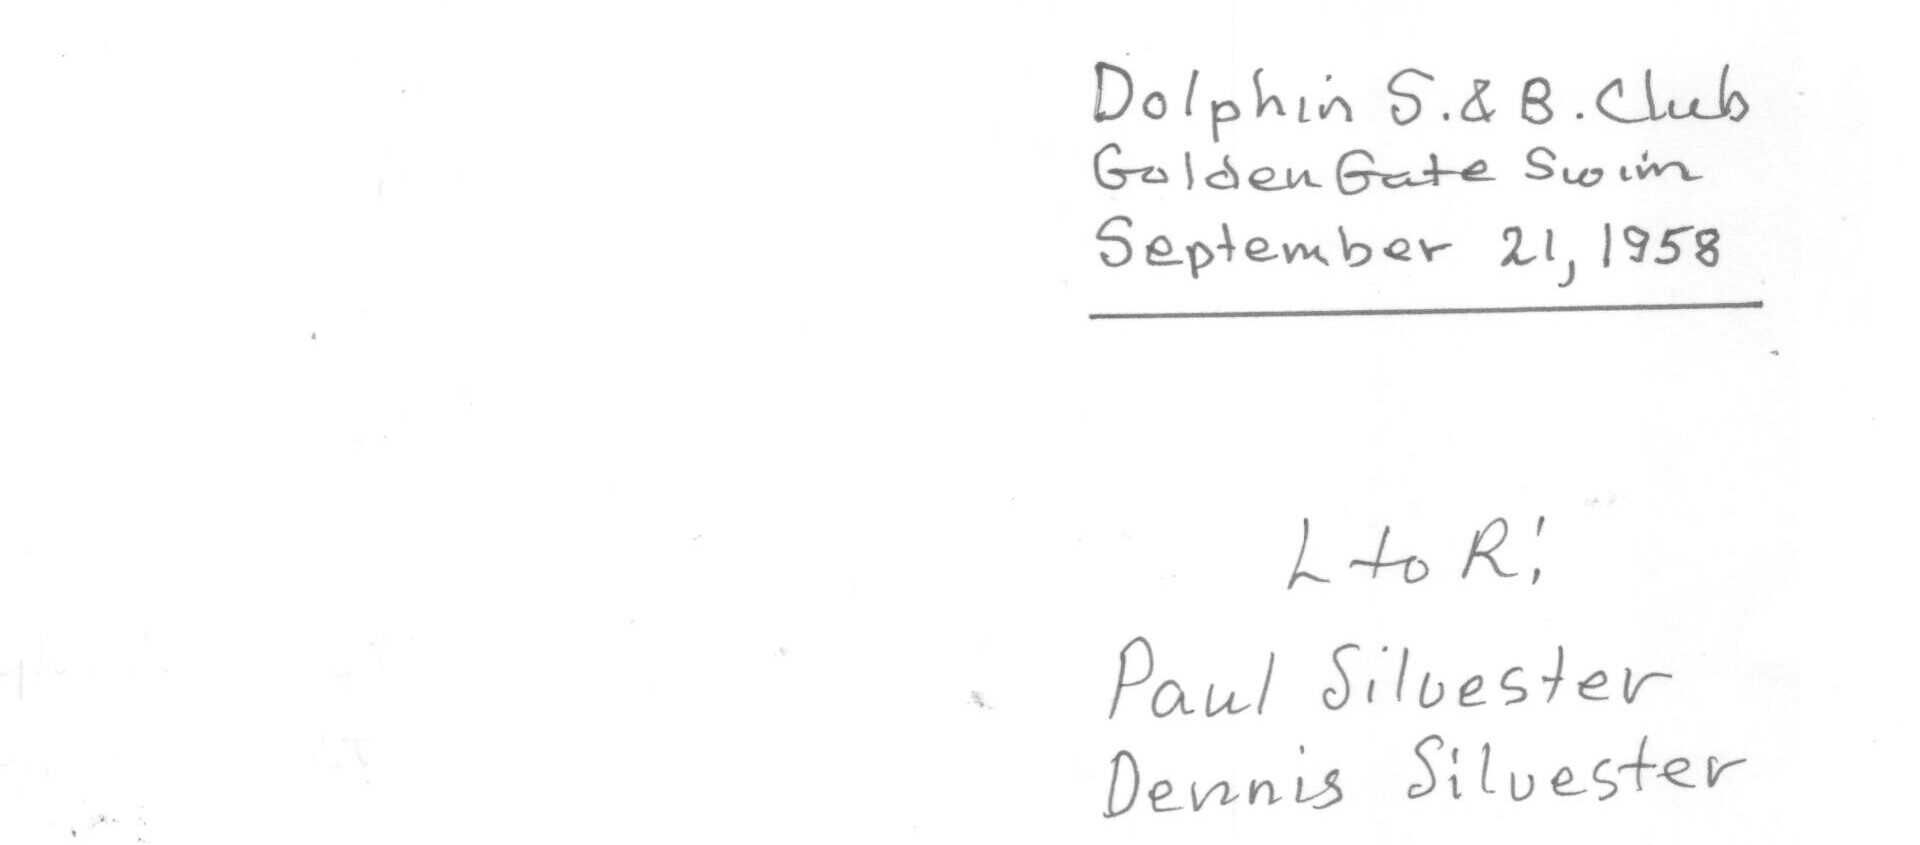 Dolphin S. & B. Club
Golden Gate Swim
September 21, 1958
L to R:
Paul Silvester
Dennis Silvester